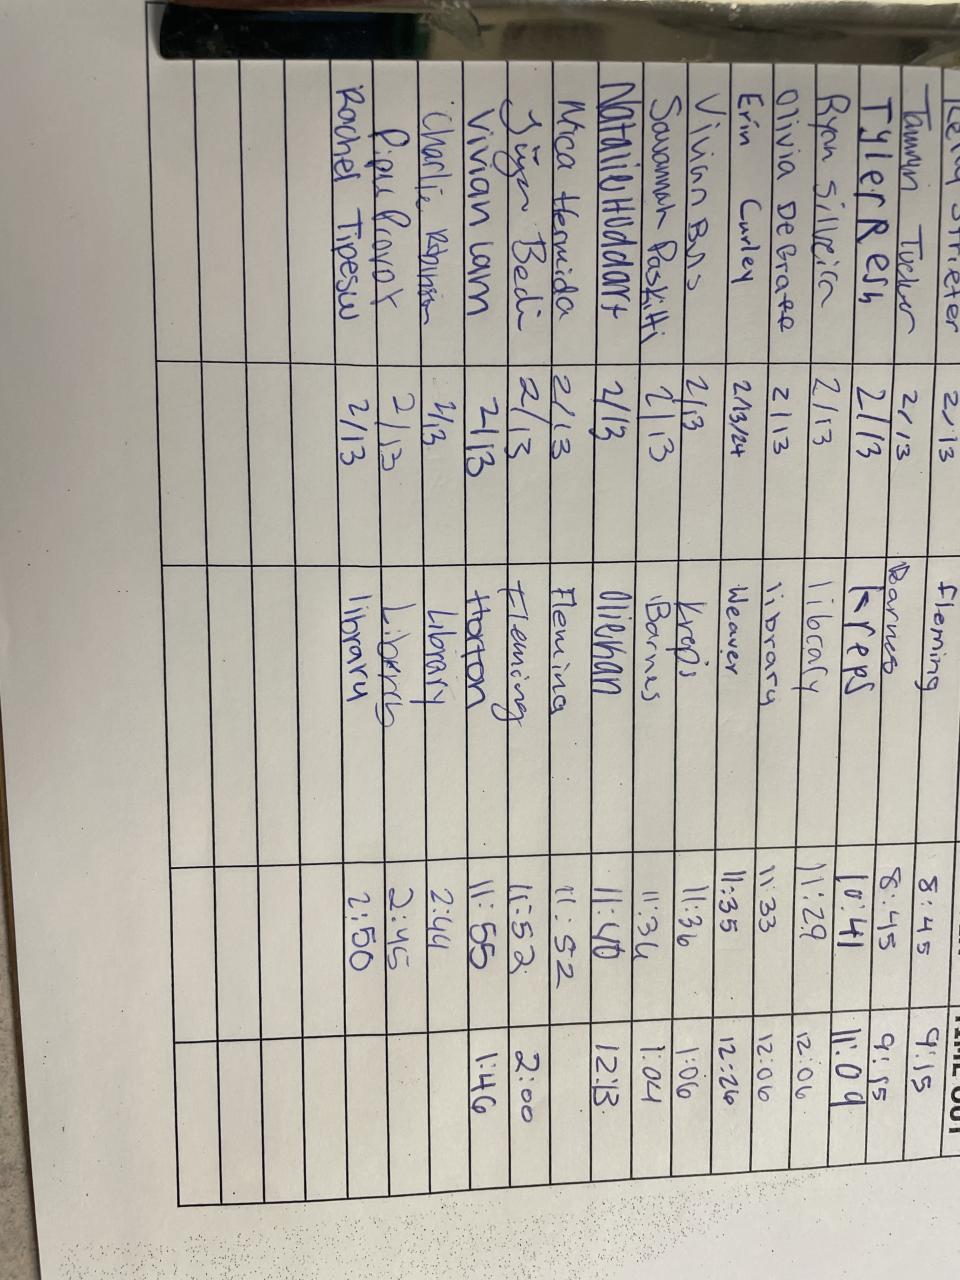 Strieter 2/13 fleming 8:45 9:15
Tammin Tucker 2/13 Barnes 8:45 9:15
Tyler Resh 2/13 Kreps 10:41 11:09
Ryan Silveira 2/13 library 11:29 12:06
Olivia DeGrate 2/13 library 11:33 12:06
Erin Curley 2/13/24 Weaver 11:35 12:26
Vivian 2/13 Krep's 11:36 1:06
Savannah Paskitti 2/13 Barnes 11:36 1:04
Natalie Huddart 2/13 11:40 12:13
Mica Hermida 2/13 Fleming 11:52
Bedi 2/13 Fleming 11:52 2:00
Vivian Lam 2/13 Horton 11:55 1:46
Charlie 2/13 Library 2:44
2/13 Library 2:45
Rachel Tipesw 2/13 library 2:50